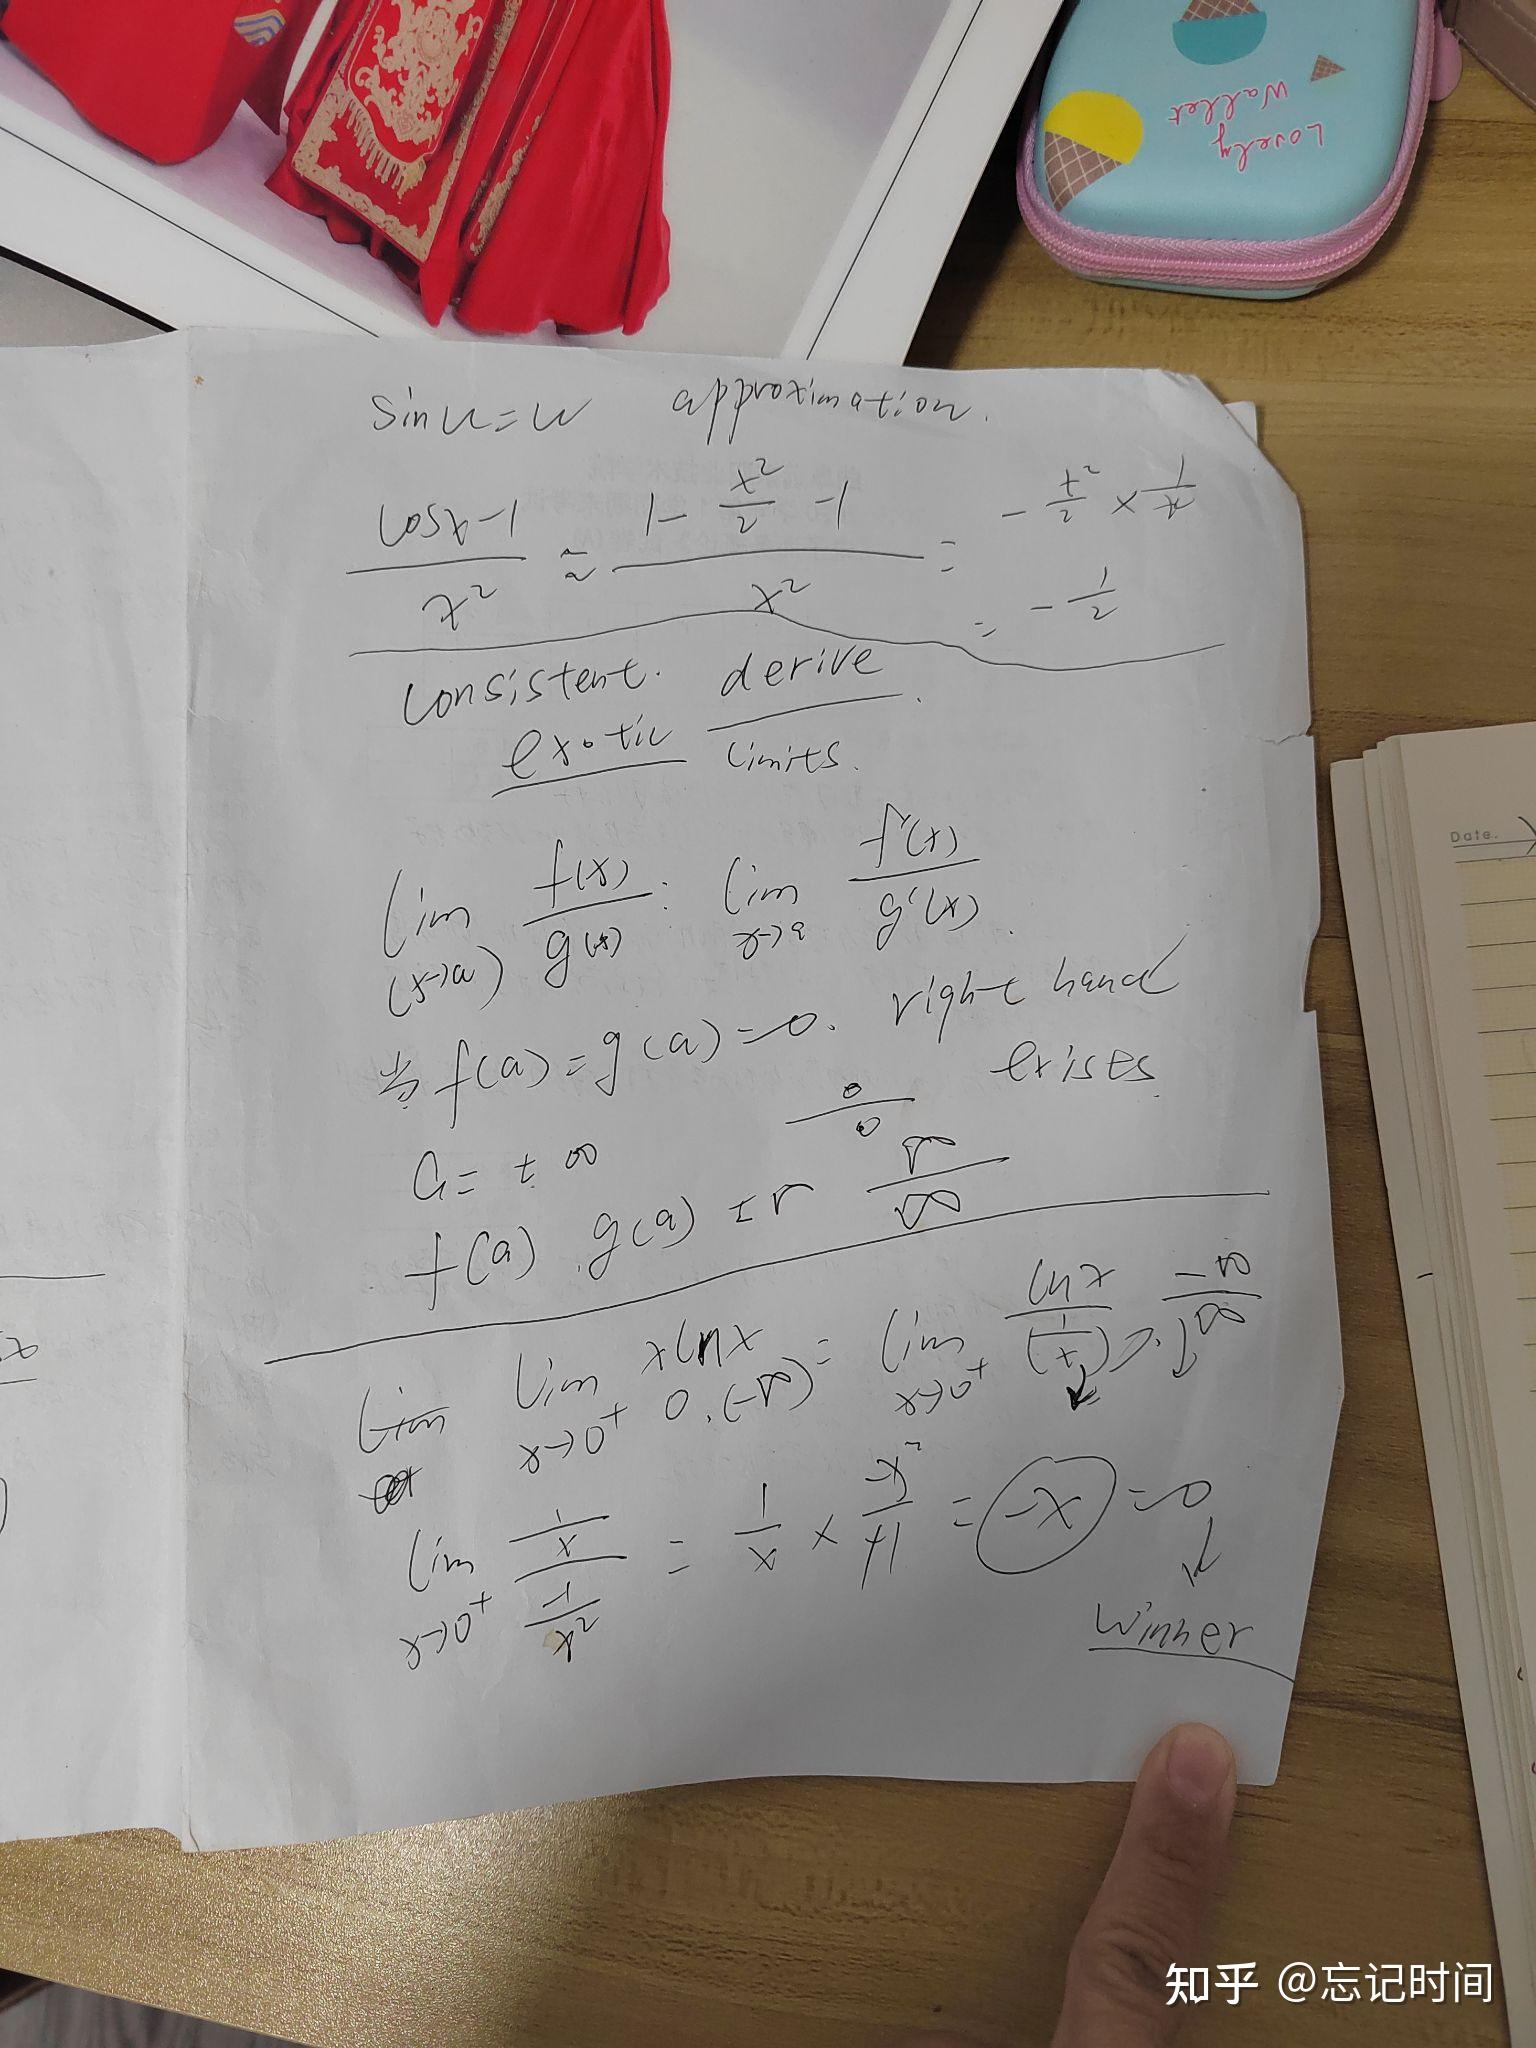 Lovely
Wallet
sin u = u approximation.
(cos x - 1)/x² ≈ (1 - x²/2 - 1)/x² = - x²/2 × 1/x²
= - 1/2
consistent. derive
exotic limits.
lim (x→a) f(x)/g(x) : lim x→a f'(x)/g'(x).
当 f(a) = g(a) = 0. right hand
exises
a = ± ∞ 0/0
f(a) . g(a) ± ∞ ∞/∞
lim lim x→0⁺ x ln x 0.(-∞) = lim x→0⁺ ln x/(1/x) -∞/∞
lim x→0⁺ (1/x)/(-1/x²) = 1/x × -x²/+1 = -x = 0
winner
Date.
知乎 @忘记时间